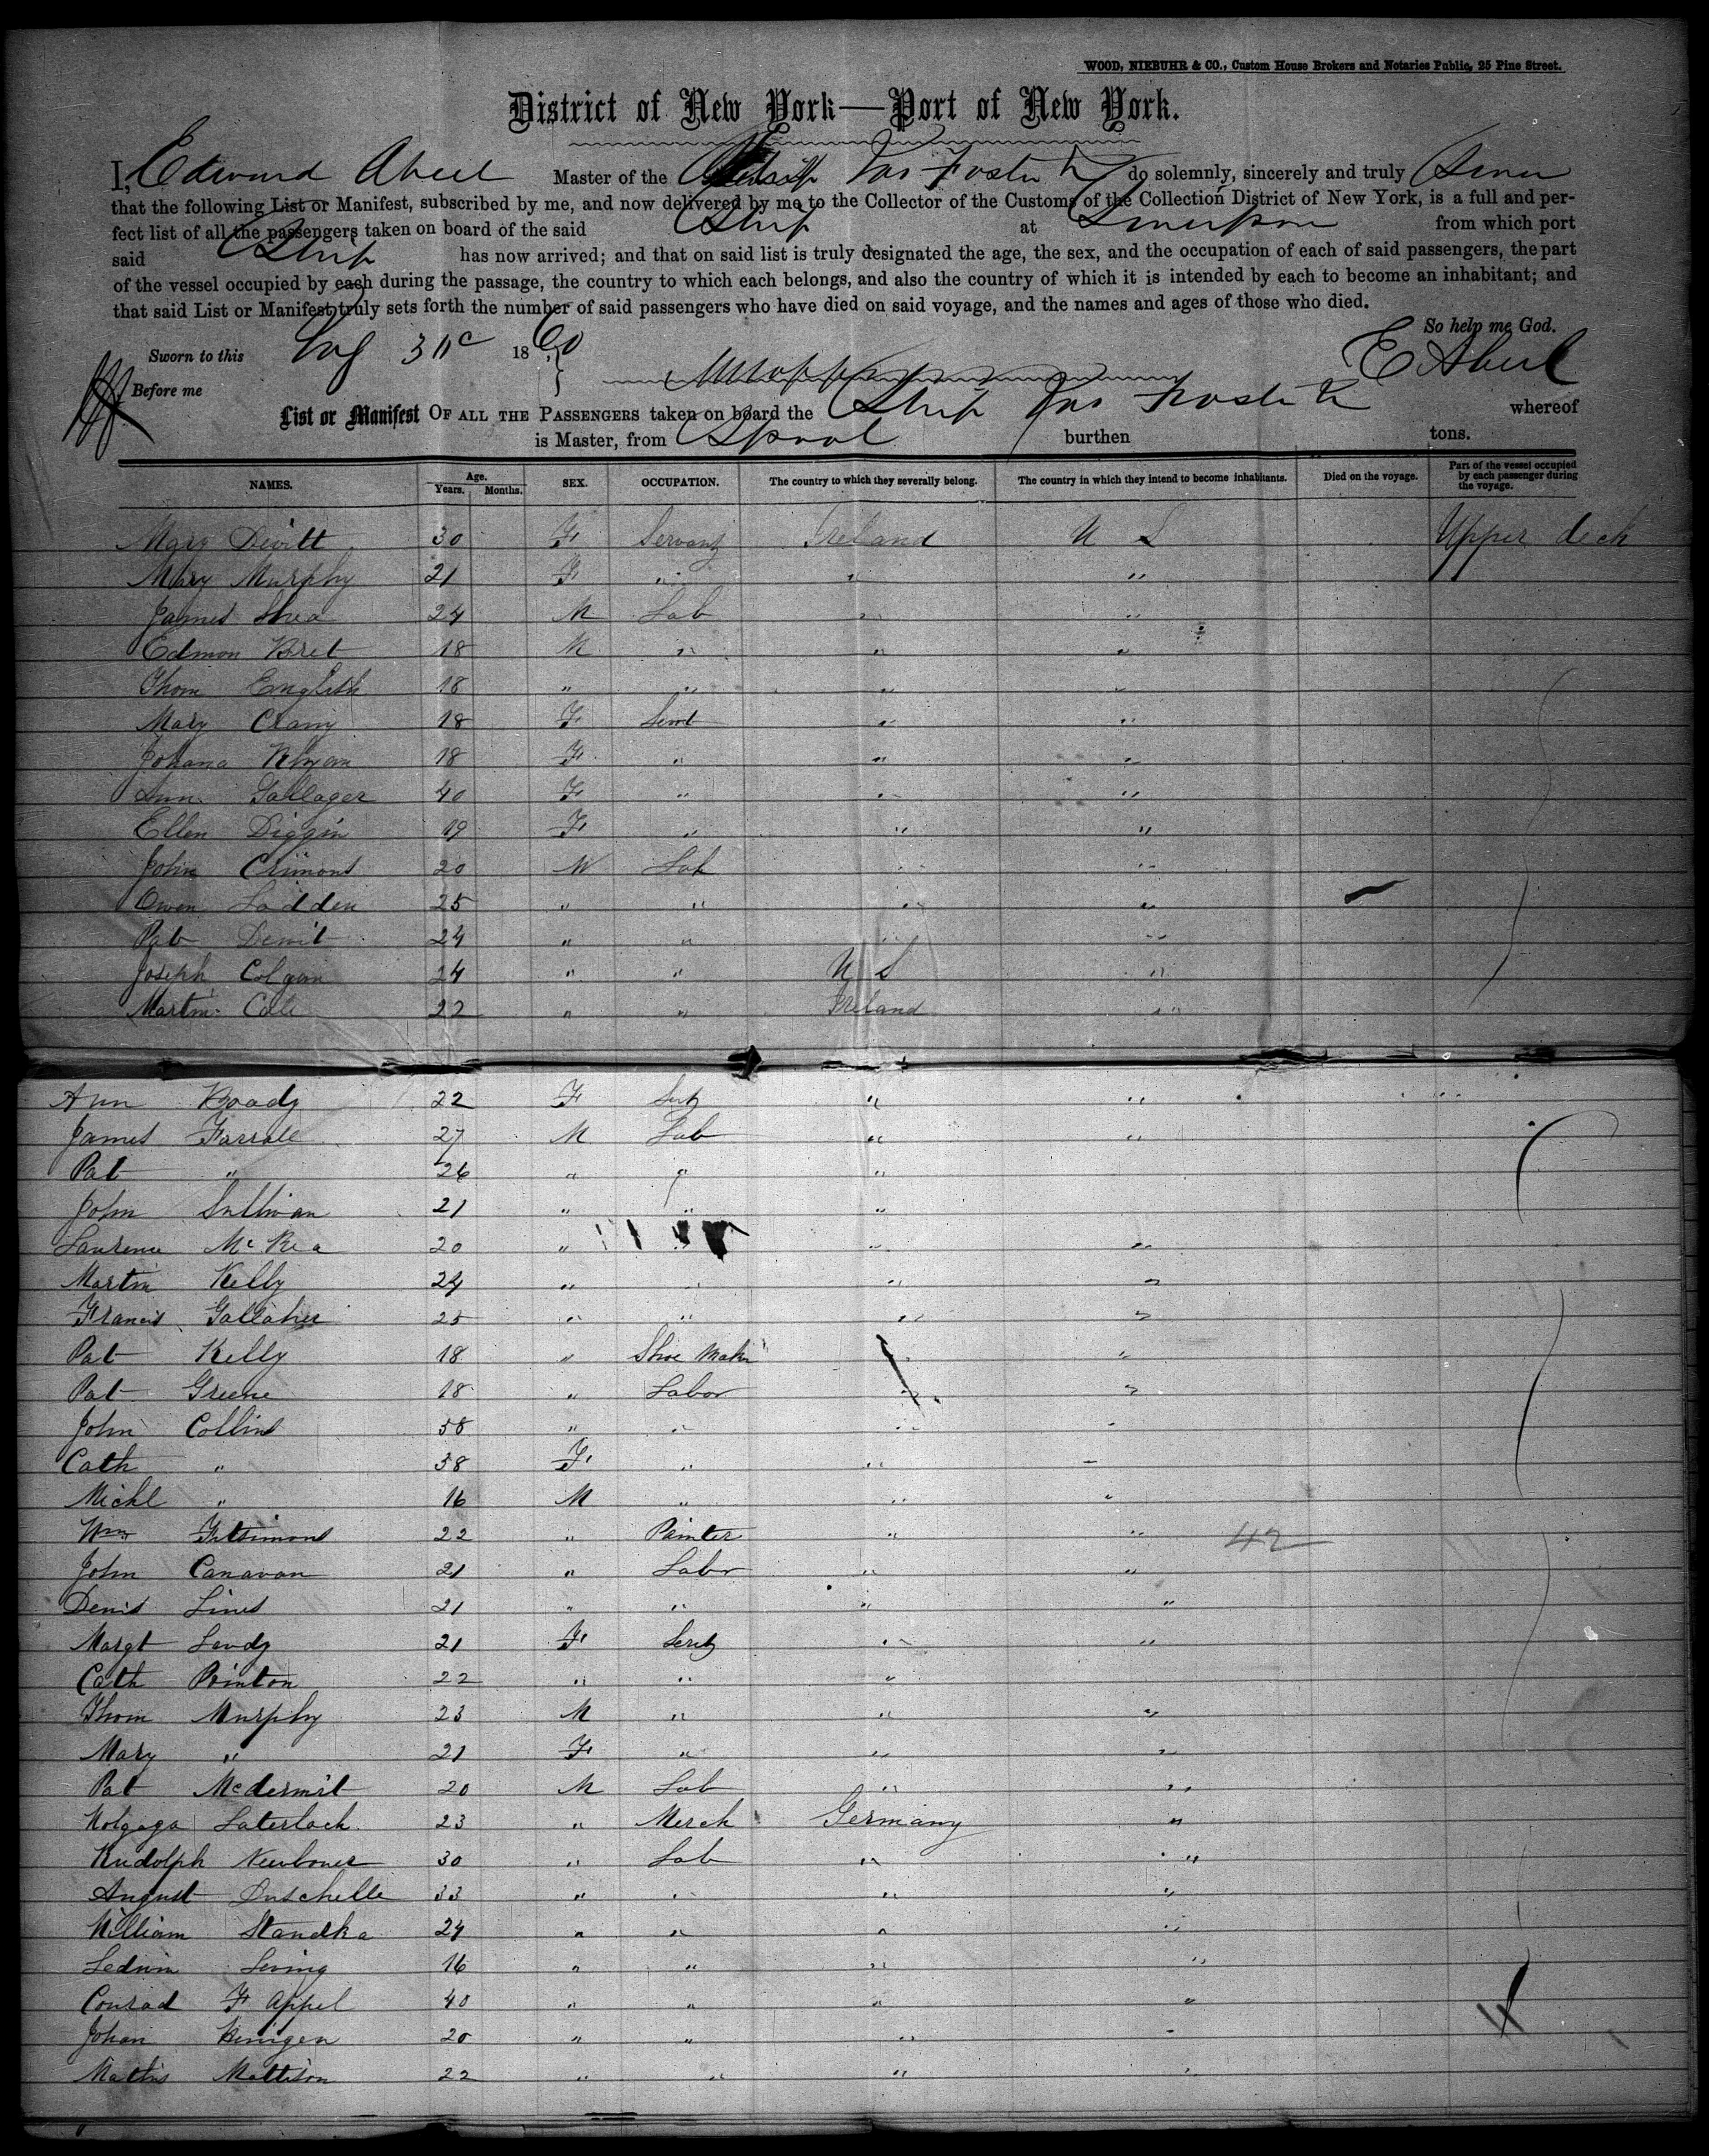 WOOD, NIEBUHR & CO., Custom House Brokers and Notaries Public, 25 Pine Street.
District of New York—Port of New York.
I, Edward Abeel Master of the Ship Jas Foster Jr do solemnly, sincerely and truly Swear
that the following List or Manifest, subscribed by me, and now delivered by me to the Collector of the Customs of the Collection District of New York, is a full and per-
fect list of all the passengers taken on board of the said Ship at Liverpool from which port
said Ship has now arrived; and that on said list is truly designated the age, the sex, and the occupation of each of said passengers, the part
of the vessel occupied by each during the passage, the country to which each belongs, and also the country of which it is intended by each to become an inhabitant; and
that said List or Manifest truly sets forth the number of said passengers who have died on said voyage, and the names and ages of those who died.
So help me God.
Sworn to this Aug 31st 1860 E Abeel
Before me
List or Manifest OF ALL THE PASSENGERS taken on board the Ship Jas Foster Jr whereof
is Master, from Lpool burthen tons.
NAMES. Age. Years. Months. SEX. OCCUPATION. The country to which they severally belong. The country in which they intend to become inhabitants. Died on the voyage. Part of the vessel occupied by each passenger during the voyage.
Mary Devitt 30 F Servant Ireland U S Upper deck
Mary Murphy 21 F " " "
James Shea 24 M Lab " "
Edmon Bret 18 M " " "
Thom English 18 " " " "
Mary Crany 18 F Servt " "
Johana 18 F " " "
Ann Gallager 40 F " " "
Ellen Diggin 19 F " " "
John Crimons 20 M Lab " "
Owen Ladden 25 " " " "
Pat Devit 24 " " " "
Joseph Colgan 24 " " U S "
Martin Cole 22 " " Ireland "
Ann Boady 22 F Servt " " "
James Farrall 27 M Lab " "
Pat " 26 " " "
John Sullivan 21 " " "
Laurence McKea 20 " " " "
Martin Kelly 24 " " " "
Francis Gallaher 25 " " " "
Pat Kelly 18 " Shoe Maker " "
Pat Greene 18 " Labor " "
John Collins 58 " " " "
Cath " 38 F " " "
Michl " 16 M " " "
Wm Fitsimons 22 " Painter " " 42
John Canavan 21 " Labor " "
Denis Lines 21 " " " "
Margt Lundy 21 F Servt " "
Cath Pointon 22 " " "
Thom Murphy 23 M " " "
Mary " 21 F " " "
Pat Mcdermit 20 M Lab " "
Laterloch 23 " Merch Germany "
Rudolph Newboner 30 " Lab " "
August Duschelle 33 " " " "
William Standka 24 " " " "
Ledwin Living 16 " " " "
Conrad F Appel 40 " " " "
Johan Henigen 20 " " " "
Mathis Mattison 22 " " " "